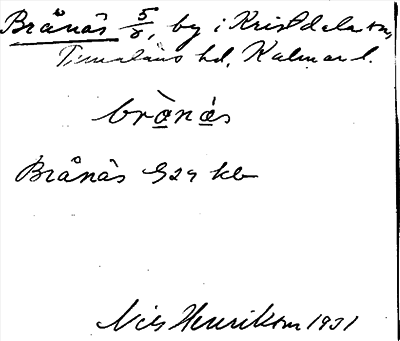 Brånäs 5/8, by i Kristdala sn,
Tunaläns hd, Kalmar l.
brånäs
Brånäs 829 kb
Nils Henrikson 1931